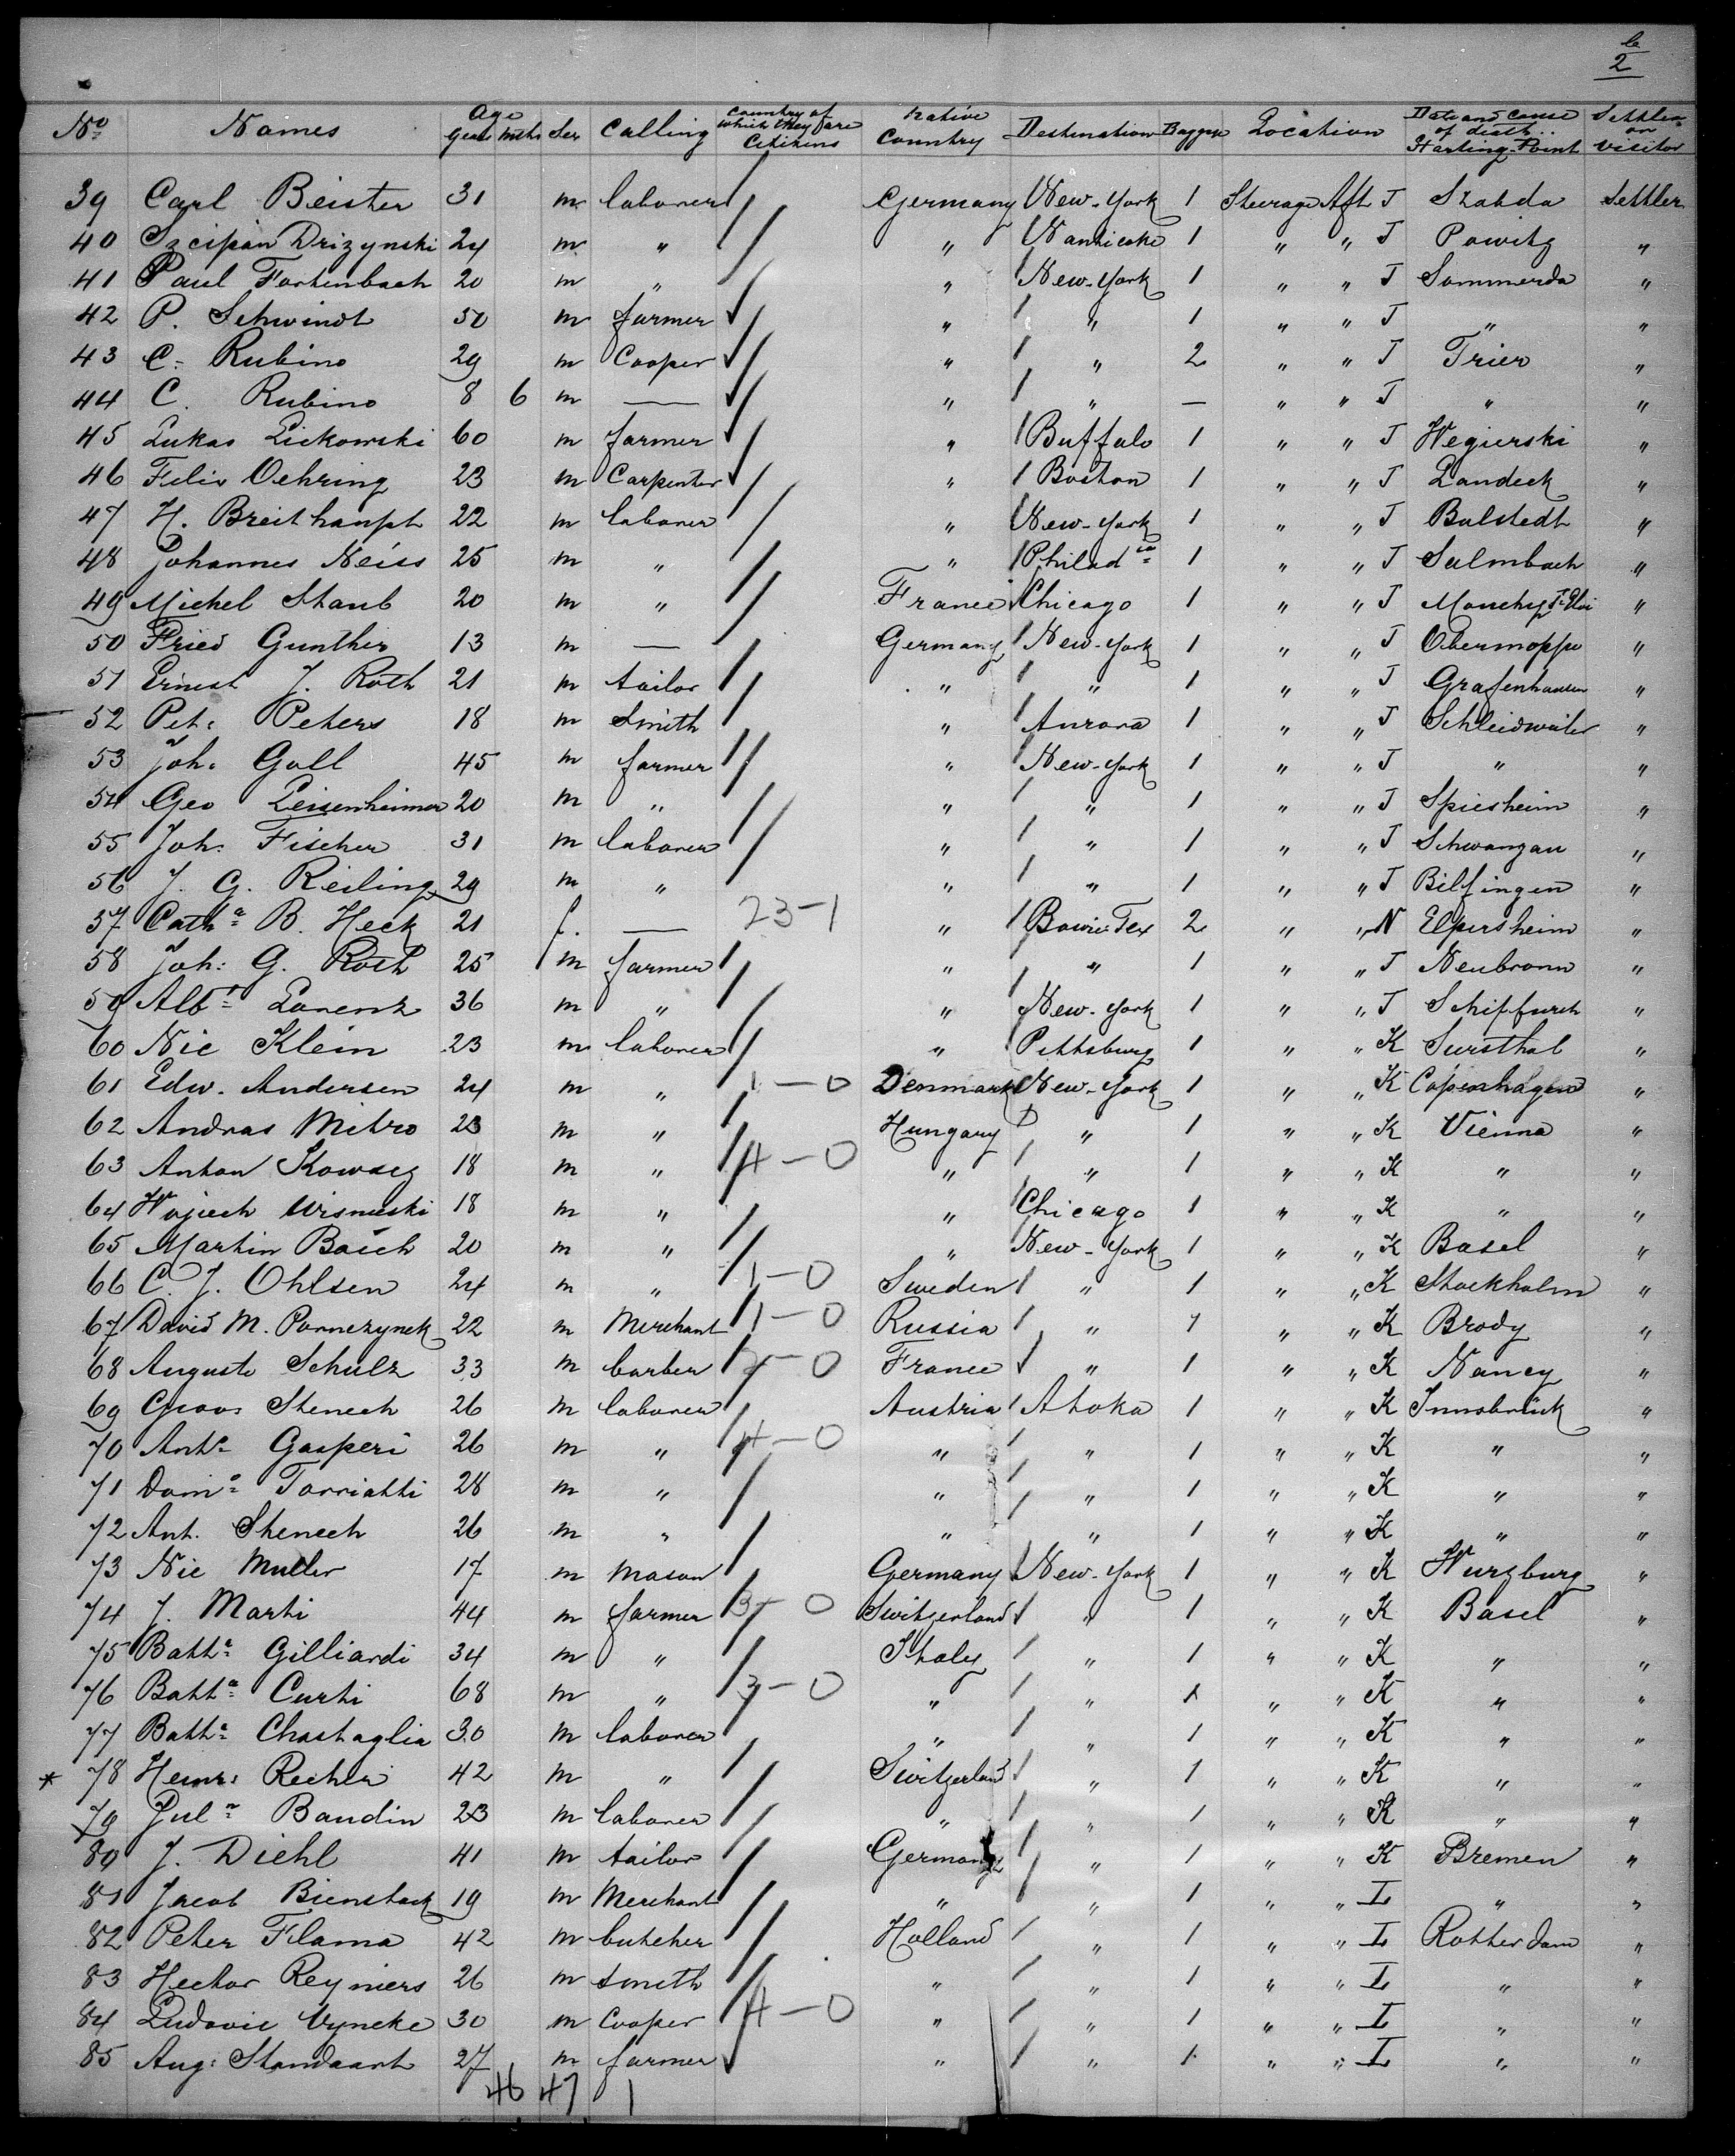 2
No Names Age Years Mths Sex Calling Country of which they are Citizens Native Country Destination Baggage Location Date and Cause of death.. Starting-Point Settler or Visitor
39 Carl Beister 31 m laborer Germany New-York 1 Steerage Aft J Settler
40 Szcipan Drizynski 24 m " " Nanticoke 1 " " J Powitz "
41 Paul Fortenbach 20 m " " New-York 1 " " J Sommerda "
42 P. Schwindt 50 m farmer " " 1 " " J " "
43 C. Rubino 29 m Cooper " " 2 " " J Trier "
44 C. Rubino 8 6 m — " " — " " J " "
45 Lukas Lickowski 60 m farmer " Buffalo 1 " " J Wegierski "
46 Felix Oehring 23 m Carpenter " Boston 1 " " J Landeck "
47 H. Breithaupt 22 m laborer " New-York 1 " " J Balstedt "
48 Johannes Neiss 25 m " " Philadia 1 " " J Salmbach "
49 Michel Staub 20 m " France Chicago 1 " " J Monchy "
50 Fried Gunther 13 m — Germany New-York 1 " " J "
51 Ernest J. Roth 21 m tailor " " 1 " " J Grafenhausen "
52 Pet: Peters 18 m Smith " Aurora 1 " " J Schleidweiler "
53 Joh: Goll 45 m farmer " New-York 1 " " J " "
54 Geo Leisenheimer 20 m " " " 1 " " J Spiesheim "
55 Joh: Fischer 31 m laborer " " 1 " " J Schwangau "
56 J. G. Reiling 29 m " " " 1 " " J Bilfingen "
57 Catha B. Heck 21 f. — 23-1 " Bowie Tex 2 " " N Elpersheim "
58 Joh: G. Roth 25 m farmer " " 1 " " J Neubronn "
59 Albt Lorenz 36 m " " New-York 1 " " J "
60 Nic Klein 23 m laborer " Pittsburg 1 " " K "
61 Edw. Andersen 24 m " 1-0 Denmark New-York 1 " " K Copenhagen "
62 Andras Mitro 23 m " Hungary " 1 " " K Vienna "
63 Anton Kowacz 18 m " 4-0 " " 1 " " K " "
64 Wojiech Wisnieski 18 m " " Chicago 1 " " K " "
65 Martin Bosch 20 m " " New-York 1 " " K Basel "
66 C. J. Ohlsen 24 m " 1-0 Sweden " 1 " " K Stockholm "
67 David M. Pornezynek 22 m Merchant 1-0 Russia " 1 " " K Brody "
68 Auguste Schulz 33 m barber 2-0 France " 1 " " K Nancy "
69 Giov: Stenech 26 m laborer Austria Atoka 1 " " K Innsbrück "
70 Anto Gasperi 26 m " 4-0 " " 1 " " K " "
71 Domo Torriatti 28 m " " " 1 " " K " "
72 Ant. Stenech 26 m " " " 1 " " K " "
73 Nic Muller 17 m Mason Germany New-York 1 " " K Wurzburg "
74 J. Marti 44 m farmer 3-0 Switzerland " 1 " " K Basel "
75 Batta Gilliardi 34 m " Italy " 1 " " K " "
76 Batta Curti 68 m " 3-0 " " 1 " " K " "
77 Batta Chastaglia 30 m laborer " " 1 " " K " "
* 78 Heinr: Recher 42 m " Switzerland " 1 " " K " "
79 Jul Baudin 23 m laborer " " 1 " " K " "
80 J. Diehl 41 m tailor Germany " 1 " " K Bremen "
81 Jacob Bienstock 19 m Merchant " " 1 " " I " "
82 Peter Flama 42 m butcher Holland " 1 " " I Rotterdam "
83 Hector Reyniers 26 m smith " " 1 " " I " "
84 Ludovic Vyncke 30 m Cooper 4-0 " " 1 " " I " "
85 Aug: Standaart 27 m farmer " " 1 " " I " "
46 47 1